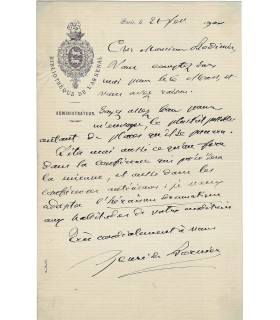 Paris, le 21 Nov 1900
BIBLIOTHÈQUE DE L'ARSENAL
ADMINISTRATEUR
Cher Monsieur Bodinier,
Vous comptez sur
moi pour le 6 Mars, et
vous avez raison.
Soyez assez bon pour
m'envoyer le plus tôt possible
autant de places qu'il se pourra.
Dites moi aussi ce qu'on fera
dans la conférence qui précédera
la mienne, et aussi dans les
conférences antérieures ; je veux
adapter l'
aux habitudes de votre auditoire
Très cordialement à vous
Henri de Bornier